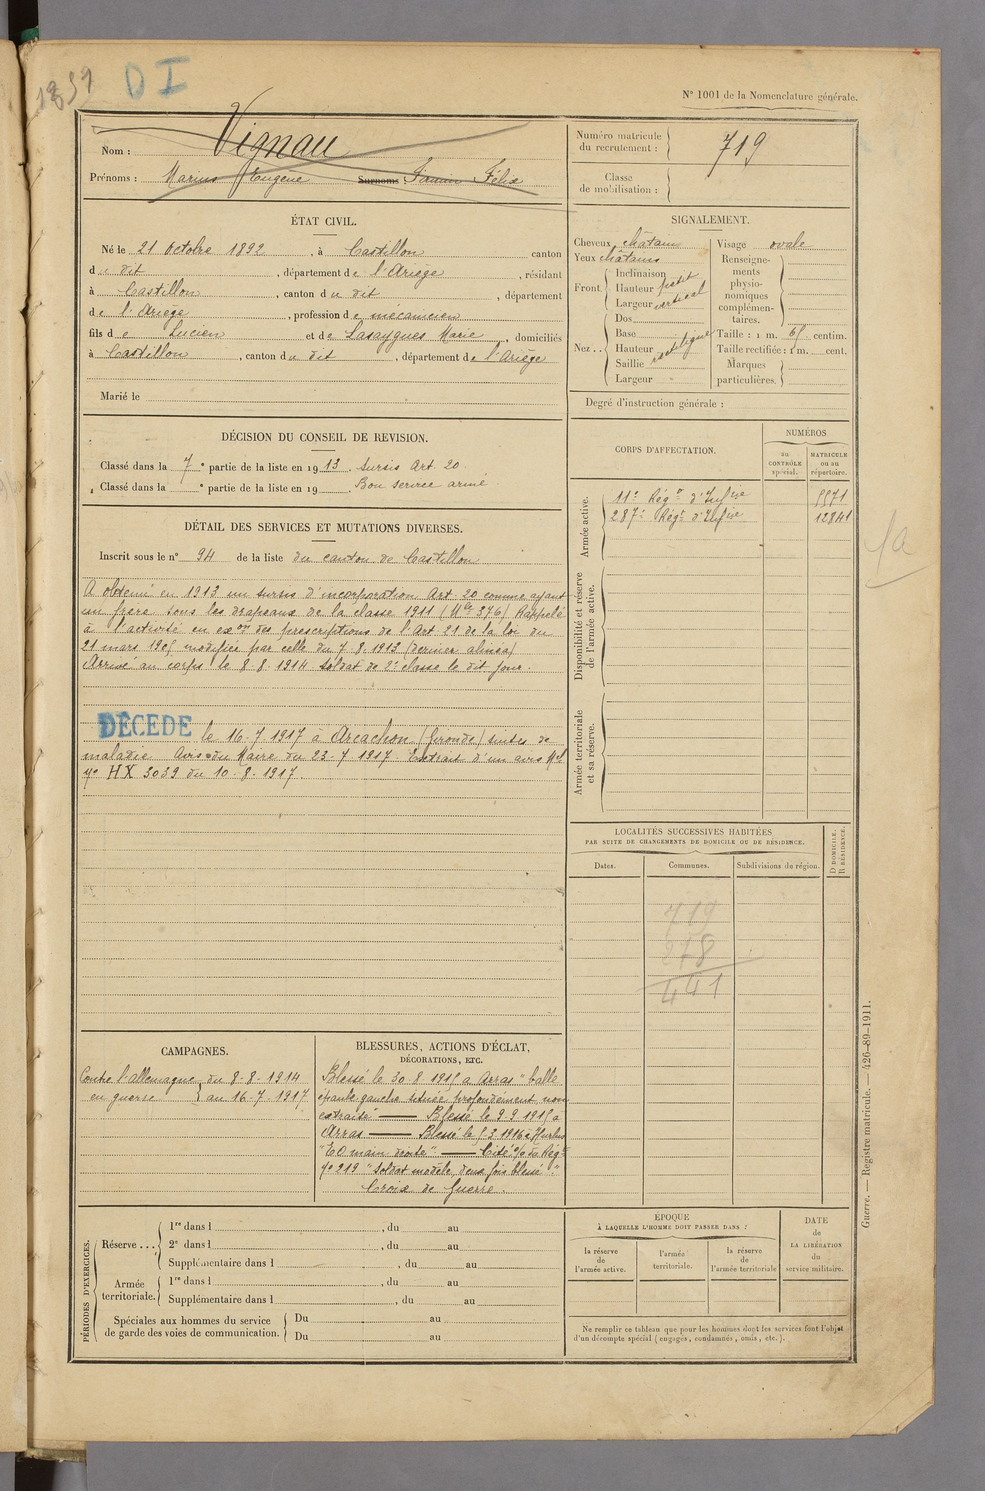 1859
D I
N° 1001 de la Nomenclature générale.
Nom : Vignau
Prénoms : Marius Eugène Surnoms : Firmin Félix
Numéro matricule du recrutement : 719
Classe de mobilisation :
ÉTAT CIVIL.
Né le 21 Octobre 1892, à Castillon canton
du dit, département de l'Ariège, résidant
à Castillon, canton du dit, département
de l'Ariège, profession de mécanicien
fils de Lucien et de Lasaygues Marie, domiciliés
à Castillon, canton du dit, département de l'Ariège
Marié le
SIGNALEMENT.
Cheveux châtain
Yeux châtains
Front. Inclinaison
Hauteur petit
Largeur vertical
Nez.. Dos
Base
Hauteur rectiligne
Saillie
Largeur
Visage ovale
Renseignements physionomiques complémentaires.
Taille : 1 m. 65 centim.
Taille rectifiée : 1 m. cent.
Marques particulières.
Degré d'instruction générale :
DÉCISION DU CONSEIL DE REVISION.
Classé dans la 7e partie de la liste en 1913. Sursis Art. 20.
Classé dans la e partie de la liste en 19 . Bon service armé
DÉTAIL DES SERVICES ET MUTATIONS DIVERSES.
Inscrit sous le n° 94 de la liste du canton de Castillon
A obtenu en 1913 un sursis d'incorporation Art. 20 comme ayant
un frère sous les drapeaux de la classe 1911 (Mle 376) Rappelé
à l'activité en exon des prescriptions de l'Art 21 de la loi du
21 mars 1905 modifiée par celle du 7.8.1913 (dernier alinéa)
Arrivé au corps le 8.8.1914 soldat de 2e classe le dit jour.
DÉCÉDÉ le 16.7.1917 à Arcachon (Gironde) suites de
maladie Avis du Maire du 23.7.1917 Extrait d'un avis Mel
No HX 3039 du 10.8.1917.
CORPS D'AFFECTATION.
NUMÉROS
au CONTRÔLE spécial.
MATRICULE ou au répertoire.
Armée active.
11e Régt d'Infrie 5571
287e Régt d'Infrie 12841
Disponibilité et réserve de l'armée active.
Armée territoriale et sa réserve.
LOCALITÉS SUCCESSIVES HABITÉES
PAR SUITE DE CHANGEMENTS DE DOMICILE OU DE RÉSIDENCE.
Dates.
Communes.
Subdivisions de région.
D DOMICILE.
R RÉSIDENCE.
719
278
441
CAMPAGNES.
Contre l'allemagne du 8-8-1914
en guerre au 16-7-1917
BLESSURES, ACTIONS D'ÉCLAT,
DÉCORATIONS, ETC.
Blessé le 30.8.1915 à Arras "balle
épaule gauche située profondément non
extraite" — Blessé le 9-9-1915 à
Arras — Blessé le 5.3.1916 à
"E O main droite" — Cité o/o du Régt
No 219 "Soldat modèle, deux fois blessé"
Croix de Guerre.
PÉRIODES D'EXERCICES.
Réserve... 1re dans l , du au
2e dans l , du au
Supplémentaire dans l , du au
Armée territoriale. 1re dans l , du au
Supplémentaire dans l , du au
Spéciales aux hommes du service
de garde des voies de communication.
Du au
Du au
ÉPOQUE
À LAQUELLE L'HOMME DOIT PASSER DANS :
la réserve de l'armée active.
l'armée territoriale.
la réserve de l'armée territoriale
DATE de LA LIBÉRATION du service militaire.
Ne remplir ce tableau que pour les hommes dont les services font l'objet
d'un décompte spécial (engagés, condamnés, omis, etc.).
Guerre. — Registre matricule. — 426-89-1911.